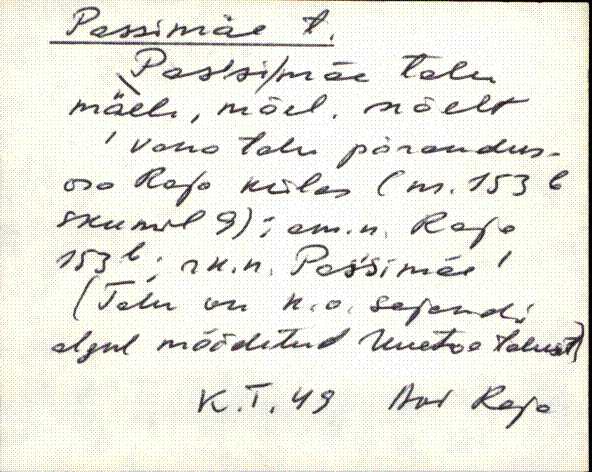 Passimäe t.
Pas'si/mäe talu
mäele, mäel, mäelt
' vana talu pärandus-
osa Raja külas (nr. 153 b
9); am.n. Raja
153 b; rk.n. Pas'simäe '
(Talu on k.o. sajandi
algul mõõdetud Uuetoa talust)
K.T. 49 Raja